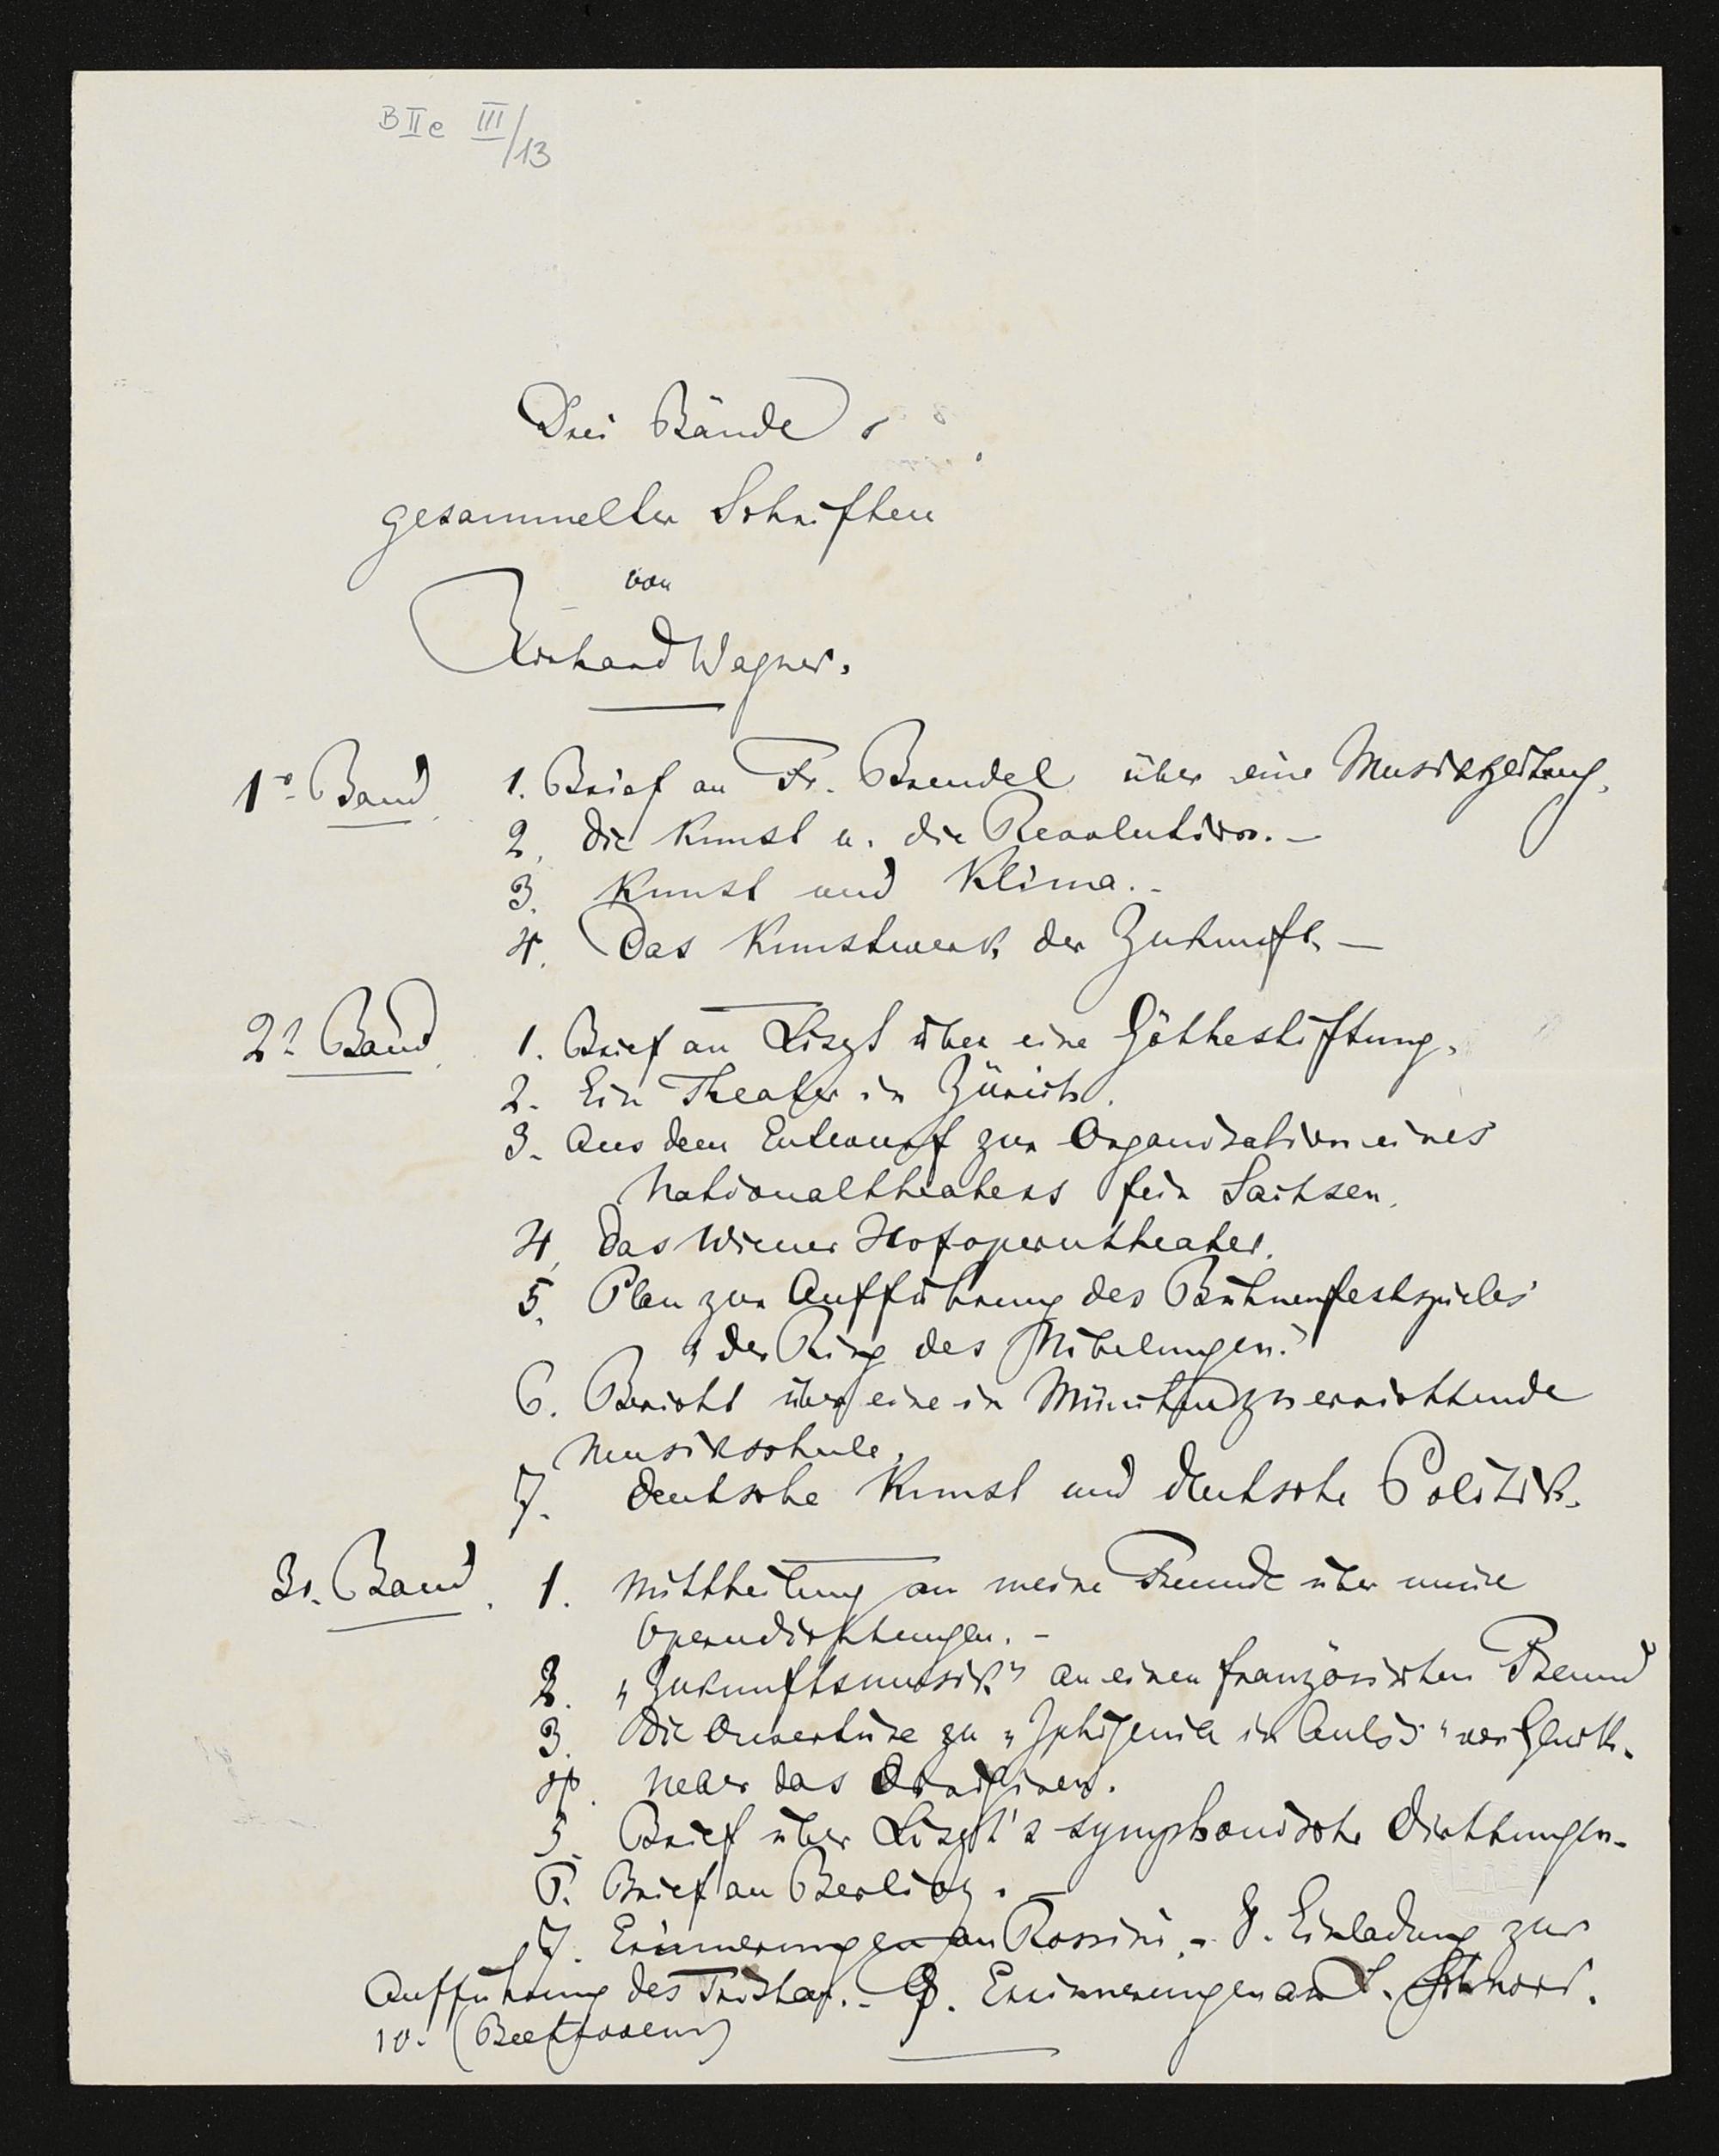 B II e III/13
Drei Bände
gesammelter Schriften
von
Richard Wagner.
1r. Band. 1. Brief an Fr. Brendel über eine Musikzeitung.
2. Die Kunst u. die Revolution. —
3. Kunst und Klima. -
4. Das Kunstwerk der Zukunft. —
2r Band. 1. Brief an Liszt über eine Göthestiftung.
2. Ein Theater in Zürich.
3. Aus dem Entwurf zur Organisation eines
Nationaltheaters für Sachsen.
4. Das Wiener Hofoperntheater.
5. Plan zur Aufführung des Bühnenfestspieles
„der Ring des Nibelungen."
6. Bericht über eine in München zu errichtende
Musikschule.
7. Deutsche Kunst und deutsche Politik.
3r. Band. 1. Mittheilung an meine Freunde über meine
Operndichtungen. -
2. „Zukunftsmusik" an einen französischen Freund
3. Die Ouvertüre zu „Iphigenia in Aulis" von Gluck.
4. Ueber das Dirigiren.
5. Brief über Liszt's symphonische Dichtungen.
6. Brief an Berlioz. —
7. Erinnerungen an Rossini. - 8. Einladung zur
Aufführung des Tristan. - 9. Erinnerungen an L. Schnorr.
10. (Beethoven)